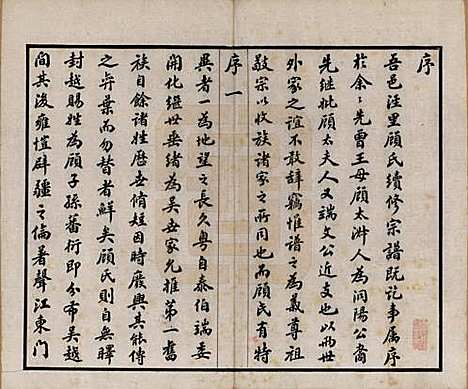 序
吾邑涇里顧氏續修宗譜既訖事属序
於余〻先曾王母顧太淑人為同陽公裔
先继妣顧太夫人又端文公近支也以两世
外家之誼不敢辞竊惟譜之為義尊祖
敬宗以收族诸家之所同也而顧氏有特
序一
異者一為地望之長久粤自泰伯端委
開化继世垂绪為吴世家允推第一舊
族自餘诸姓歷世脩短因時废興其能傳
之弈葉而勿替者鮮矣顧氏則自無曎
封越賜姓為顧子孫蕃衍即分布吴越
间其後雍愷辟疆之倫著聲江東門